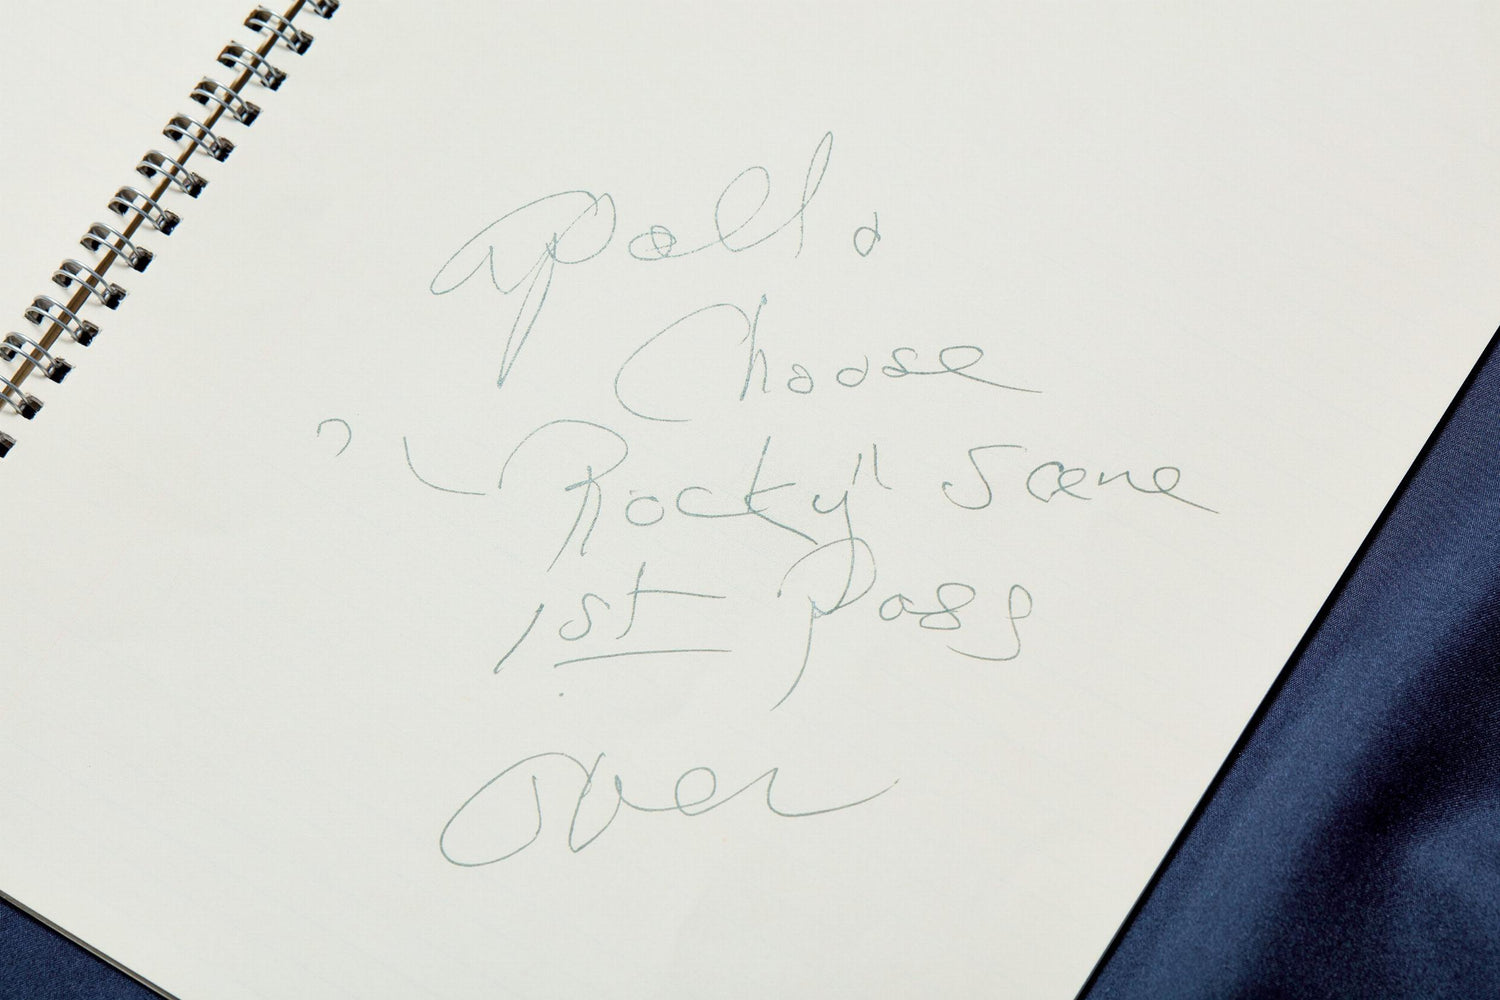 Apollo
Choose
"Rocky" Scene
1st Pass
Over